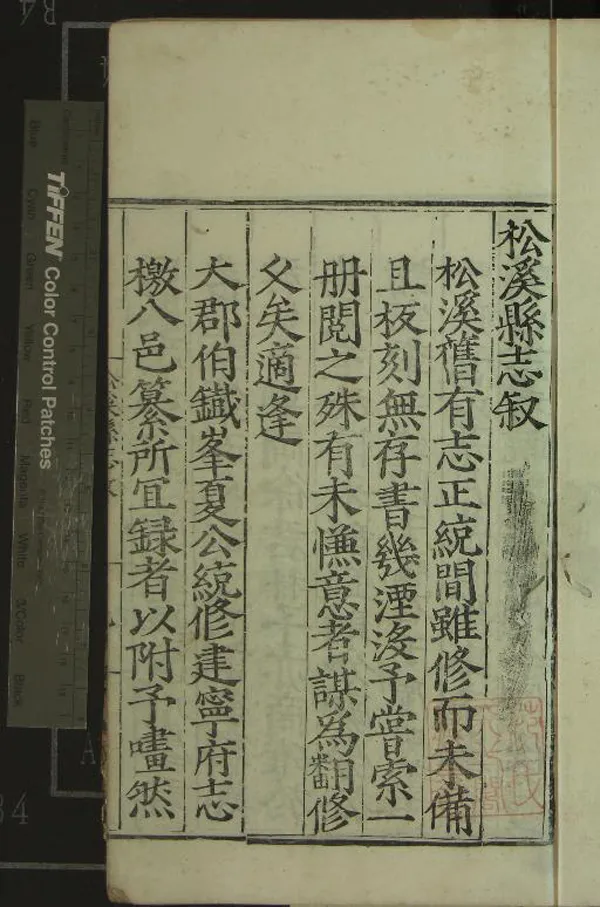 松溪縣志叙
松溪舊有志正統間雖修而未備
且板刻無存書幾湮没予嘗索一
册閱之殊有未慊意者謀為翻修
乆矣適逢
大郡伯鐵峯夏公統修建寧府志
檄八邑纂所冝録者以附予𧭹然
TiFFEN Color Control Patches
Blue
Cyan
Green
Yellow
Red
Magenta
White
3/Color
Black